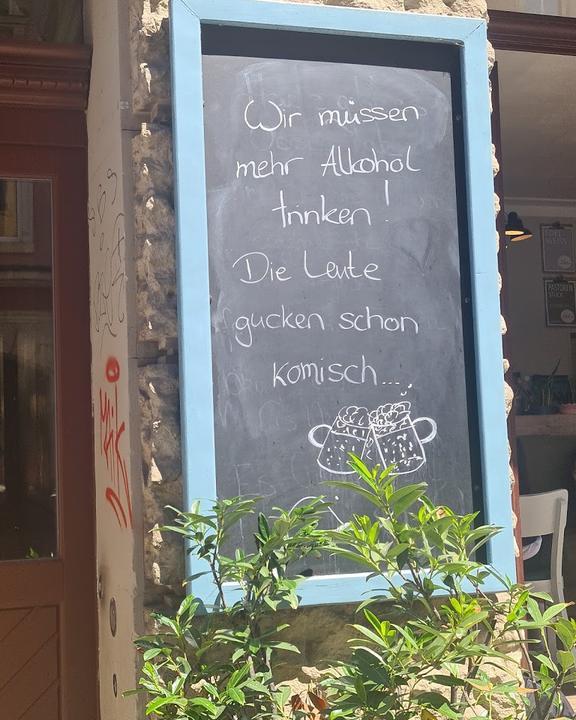 Wir müssen
mehr Alkohol
trinken!
Die Leute
gucken schon
komisch...